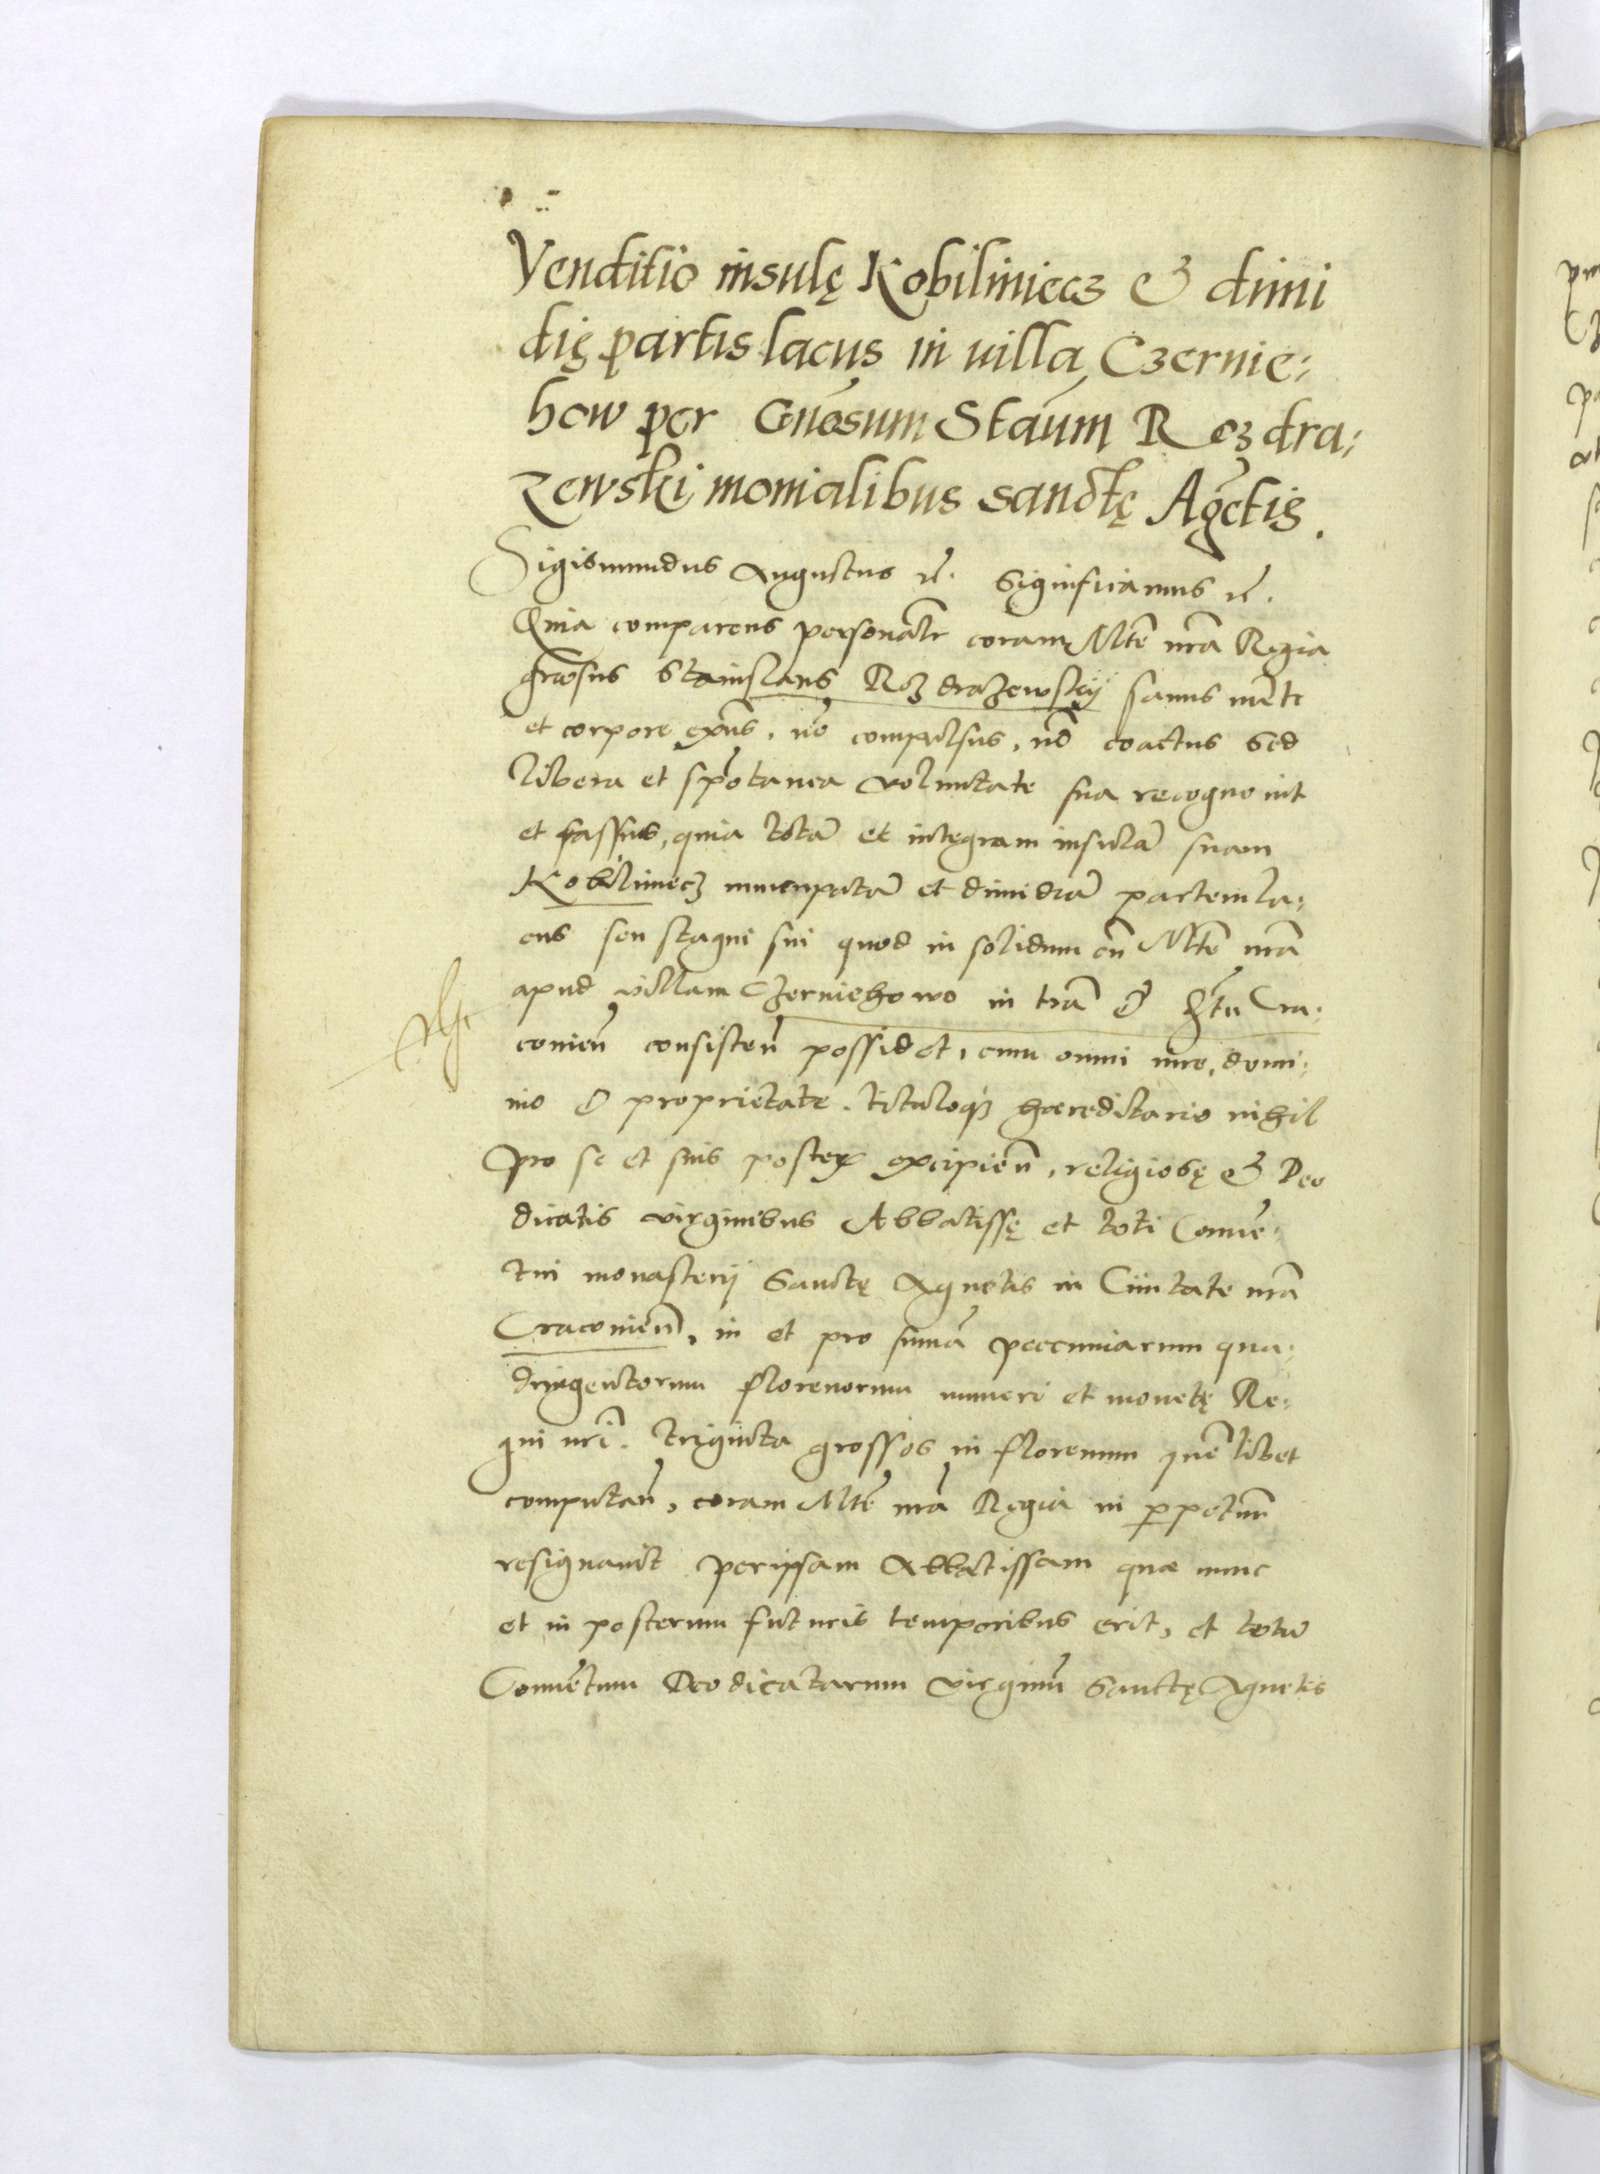 Venditio insulę Kobiliniecz & dimi
dię partis lacus in uilla Czernie:
how per Gn̄osum Stā̄um Rozdra:
zewski monialibus sanctę Agn̄etis.
Sigismundus Augustus rc̄. Significamus rc̄.
Quia comparens personal̄r coram Mt̄e nr̄a Regia
gn̄rosus Stanislaus Rozdrazewskij sanus mēte
et corpore exn̄s, nō compulsus, nō coactus sed
libera et spōtanea voluntate sua recognouit
et fassus, quia totā et integram insulā suam
Kobiliniecz nuncupatā et dimidiā partem la:
cus seu stagni sui quod in solidum cū Mt̄e nr̄a
apud villam Czerniehowo in tr̄a & Cra:
conieñ consisteñ possidet, cum omni iure, domi:
nio & proprietate, tituloq₃ hæreditario nihil
pro se et suis poster excipieñ, religiosę & Deo
dicatis virginibus Abbatissę et toti Conuē:
tui monasterij Sanctę Agnetis in Ciuitate nr̄a
Cracouieñ, in et pro sum̄a peccuniarum qua:
dringentorum florenorum numeri et monetę Re:
gni nr̄i. triginta grossos in florenum quē libet
computañ, coram Mt̄e nr̄a Regia in ꝑpetuū
resignauit per ipsam Abbatissam quæ nunc
et in posterum futuris temporibus erit, et totū
Conuētum Deo dicatarum virginū Sanctę Agnetis